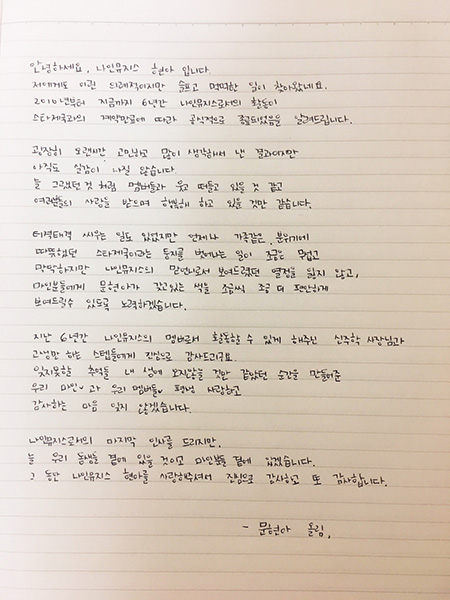 안녕하세요, 나인뮤지스 현아 입니다
저에게도 이런 의례적이지만 슬프고 먹먹한 일이 찾아왔네요.
2010년부터 지금까지 6년간 나인뮤지스로서의 활동이
스타제국과의 계약만료에 따라 공식적으로 종료되었음을 알려드립니다.
굉장히 오랜시간 고민하고 많이 생각해서 낸 결과이지만
아직도 실감이 나질 않습니다.
늘 그랬던 것 처럼 멤버들과 웃고 떠들고 있을 것 같고
여러분들의 사랑을 받으며 행복해 하고 있을 것만 같습니다.
티격태격 싸우는 일도 있었지만 언제나 가족같은 분위기에
따뜻했던 스타제국이라는 둥지를 벗어나는 일이 조금은 무섭고
막막하지만 나인뮤지스의 맏언니로서 보여드렸던 열정을 잃지 않고,
마인분들에게 문현아가 갖고있는 색을 조금씩 조금 더 편안하게
보여드릴수 있도록 노력하겠습니다.
지난 6년간 나인뮤지스의 멤버로서 활동할 수 있게 해주신 신주학 사장님과
고생만 하는 스텝들에게 진심으로 감사드리구요.
잊지못할 추억들 내 생에 오지않을 것만 같았던 순간을 만들어준
우리 마인♥과 우리 멤버들♥ 평생 사랑하고
감사하는 마음 잊지 않겠습니다.
나인뮤지스로서의 마지막 인사를 드리지만.
늘 우리 동생들 곁에 있을 것이고 마인분들 곁에 있겠습니다.
그 동안 나인뮤지스 현아를 사랑해주셔서 진심으로 감사하고 또 감사합니다.
- 문현아 올림.